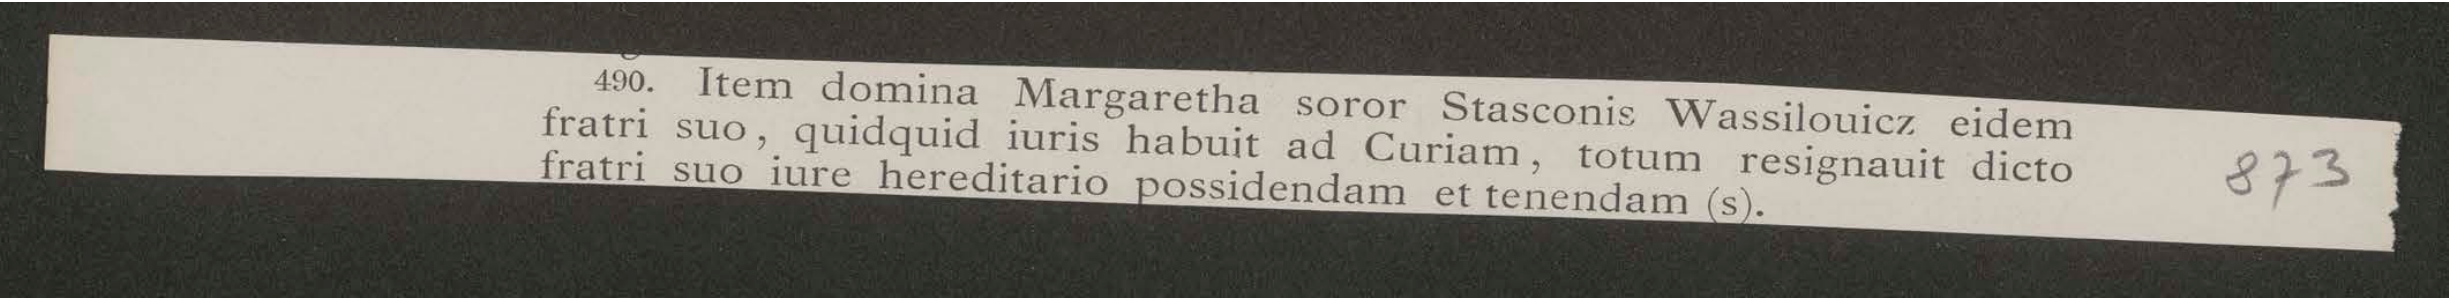 490. Item domina Margaretha soror Stasconis Wassilouicz eidem
fratri suo, quidquid iuris habuit ad Curiam, totum resignauit dicto
fratri suo iure hereditario possidendam et tenendam (s).
873